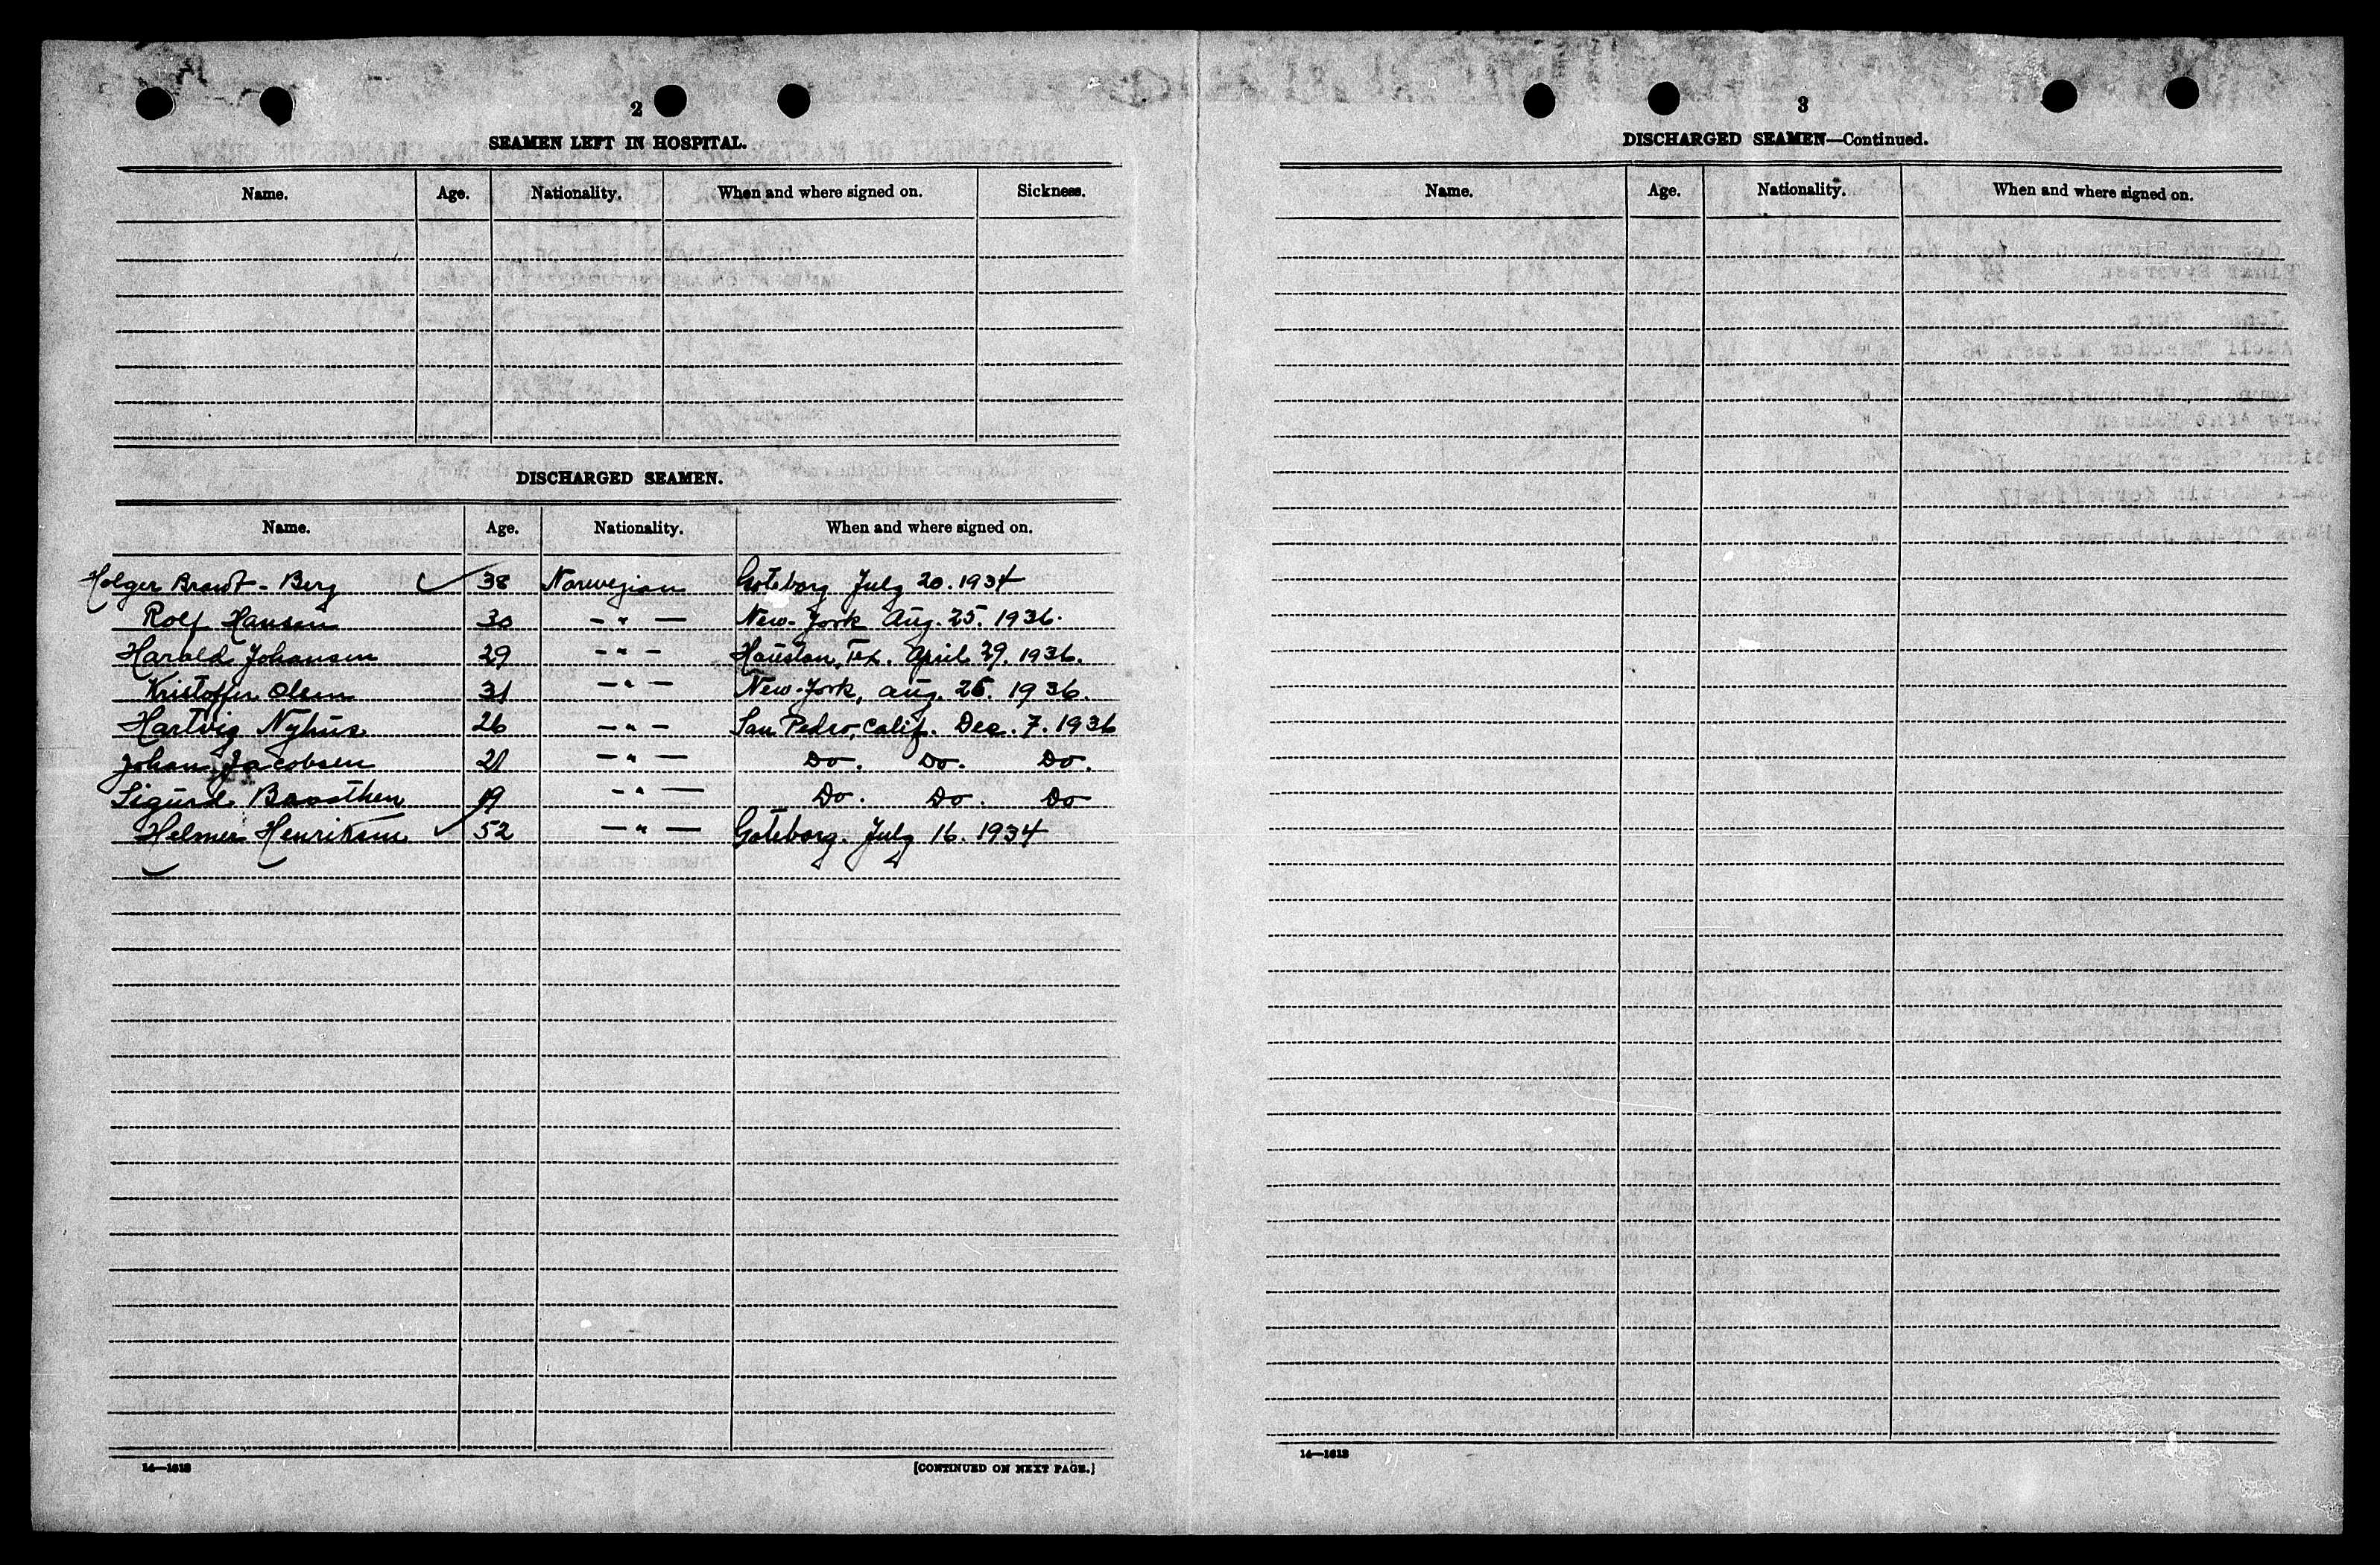 2
SEAMEN LEFT IN HOSPITAL.
Name. Age. Nationality. When and where signed on. Sickness.
DISCHARGED SEAMEN.
Name. Age. Nationality. When and where signed on.
Holger Brandt - Berg 38 Norwegian Goteborg July 20. 1934
Rolf Hansen 30 - " - New-York Aug. 25. 1936.
Harald Johansen 29 - " - Houston, Tex. April 29. 1936.
Kristoffer Olsen 31 - " - New-York, Aug. 25. 1936.
Hartvig Nyhus 26 - " - San Pedro, Calif. Dec. 7. 1936
Johan Jacobsen 21 - " - Do. Do. Do.
Sigurd 19 - " - Do. Do. Do
Helmer Henriksen 52 - " - Goteborg. July 16. 1934
14—1618
[CONTINUED ON NEXT PAGE.]
3
DISCHARGED SEAMEN—Continued.
Name. Age. Nationality. When and where signed on.
14—1618